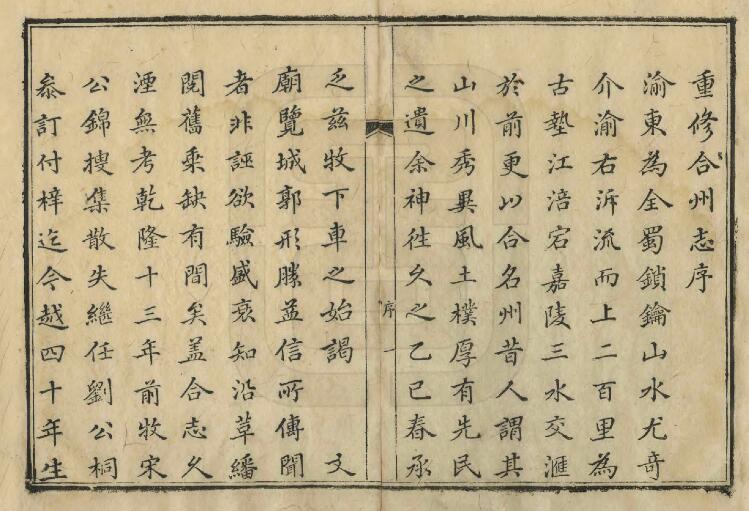 重修合州志序
渝東為全蜀鎖鑰山水尤奇
介渝右泝流而上二百里為
古墊江涪宕嘉陵三水交滙
於前更以合名州昔人謂其
山川秀異風土樸厚有先民
之遺余神徃久之乙巳春承
序 一
乏茲牧下車之始謁 文
廟覽城郭形勝益信所傳聞
者非誣欲驗盛衰知沿革繙
閱舊乘缺有間矣盖合志久
湮無考乾隆十三年前牧宋
公錦搜集散失繼任劉公桐
叅訂付梓迄今越四十年生